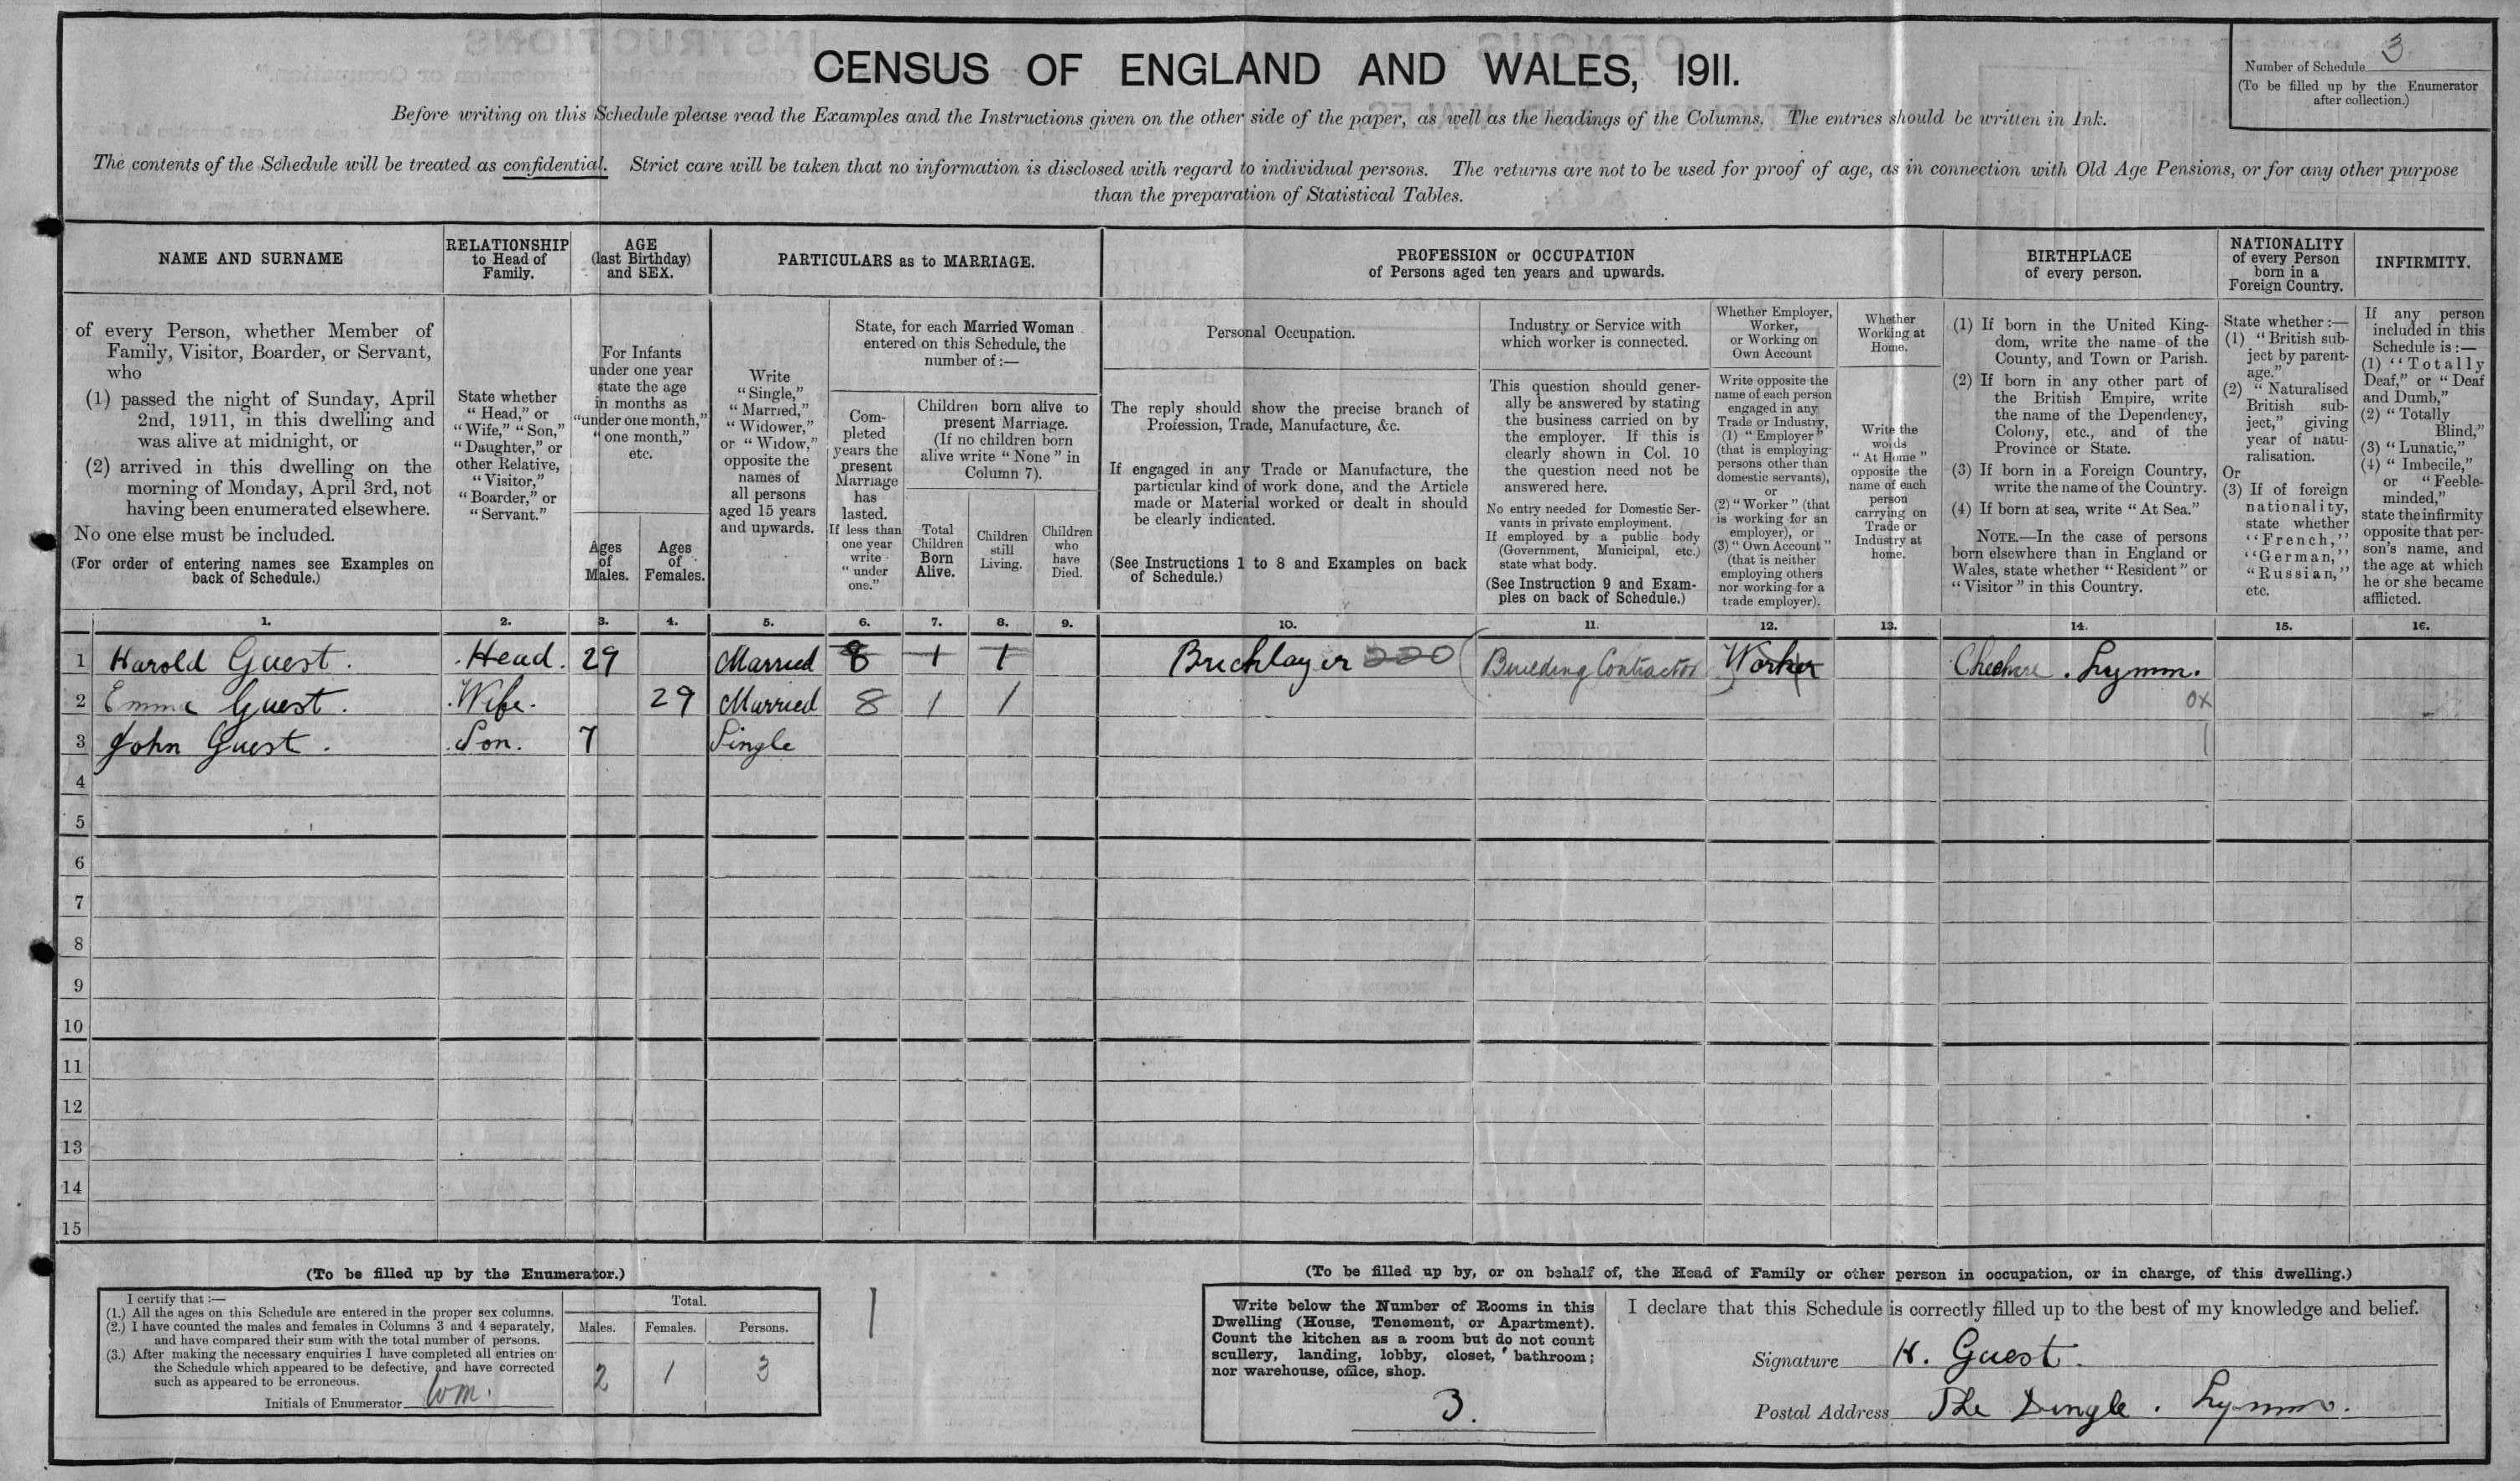 CENSUS OF ENGLAND AND WALES, 1911.
Number of Schedule 3
(To be filled up by the Enumerator
after collection.)
Before writing on this Schedule please read the Examples and the Instructions given on the other side of the paper, as well as the headings of the Columns. The entries should be written in Ink.
The contents of the Schedule will be treated as confidential. Strict care will be taken that no information is disclosed with regard to individual persons. The returns are not to be used for proof of age, as in connection with Old Age Pensions, or for any other purpose
than the preparation of Statistical Tables.
NAME AND SURNAME
of every Person, whether Member of
Family, Visitor, Boarder, or Servant,
who
(1) passed the night of Sunday, April
2nd, 1911, in this dwelling and
was alive at midnight, or
(2) arrived in this dwelling on the
morning of Monday, April 3rd, not
having been enumerated elsewhere.
No one else must be included.
(For order of entering names see Examples on
back of Schedule.)
RELATIONSHIP
to Head of
Family.
State whether
"Head," or
"Wife," "Son,"
"Daughter," or
other Relative,
"Visitor,"
"Boarder," or
"Servant."
AGE
(last Birthday)
and SEX.
For Infants
under one year
state the age
in months as
"under one month,"
"one month,"
etc.
Ages
of
Males.
Ages
of
Females.
PARTICULARS as to MARRIAGE.
Write
"Single,"
"Married,"
"Widower,"
or "Widow,"
opposite the
names of
all persons
aged 15 years
and upwards.
State, for each Married Woman
entered on this Schedule, the
number of :—
Com-
pleted
years the
present
Marriage
has
lasted.
If less than
one year
write
"under
one."
Children born alive to
present Marriage.
(If no children born
alive write "None" in
Column 7).
Total
Children
Born
Alive.
Children
still
Living.
Children
who
have
Died.
PROFESSION or OCCUPATION
of Persons aged ten years and upwards.
Personal Occupation.
The reply should show the precise branch of
Profession, Trade, Manufacture, &c.
If engaged in any Trade or Manufacture, the
particular kind of work done, and the Article
made or Material worked or dealt in should
be clearly indicated.
(See Instructions 1 to 8 and Examples on back
of Schedule.)
Industry or Service with
which worker is connected.
This question should gener-
ally be answered by stating
the business carried on by
the employer. If this is
clearly shown in Col. 10
the question need not be
answered here.
No entry needed for Domestic Ser-
vants in private employment.
If employed by a public body
(Government, Municipal, etc.)
state what body.
(See Instruction 9 and Exam-
ples on back of Schedule.)
Whether Employer,
Worker,
or Working on
Own Account
Write opposite the
name of each person
engaged in any
Trade or Industry,
(1) "Employer"
(that is employing
persons other than
domestic servants),
or
(2) "Worker" (that
is working for an
employer), or
(3) "Own Account"
(that is neither
employing others
nor working for a
trade employer).
Whether
Working at
Home.
Write the
words
"At Home"
opposite the
name of each
person
carrying on
Trade or
Industry at
home.
BIRTHPLACE
of every person.
(1) If born in the United King-
dom, write the name of the
County, and Town or Parish.
(2) If born in any other part of
the British Empire, write
the name of the Dependency,
Colony, etc., and of the
Province or State.
(3) If born in a Foreign Country,
write the name of the Country.
(4) If born at sea, write "At Sea."
NOTE.—In the case of persons
born elsewhere than in England or
Wales, state whether "Resident" or
"Visitor" in this Country.
NATIONALITY
of every Person
born in a
Foreign Country.
State whether :—
(1) "British sub-
ject by parent-
age."
(2) "Naturalised
British sub-
ject," giving
year of natu-
ralisation.
Or
(3) If of foreign
nationality,
state whether
"French,"
"German,"
"Russian,"
etc.
INFIRMITY.
If any person
included in this
Schedule is :—
(1) "Totally
Deaf," or "Deaf
and Dumb,"
(2) "Totally
Blind,"
(3) "Lunatic,"
(4) "Imbecile,"
or "Feeble-
minded,"
state the infirmity
opposite that per-
son's name, and
the age at which
he or she became
afflicted.
1. 2. 3. 4. 5. 6. 7. 8. 9. 10. 11. 12. 13. 14. 15. 16.
1 Harold Guest. Head. 29 Married 8 1 1 Bricklayer 220 Building Contractor Worker Cheshire. Lymm.
2 Emma Guest. Wife. 29 Married 8 1 1 0x
3 John Guest. Son. 7 Single
4
5
6
7
8
9
10
11
12
13
14
15
(To be filled up by the Enumerator.)
I certify that :—
(1.) All the ages on this Schedule are entered in the proper sex columns.
(2.) I have counted the males and females in Columns 3 and 4 separately,
and have compared their sum with the total number of persons.
(3.) After making the necessary enquiries I have completed all entries on
the Schedule which appeared to be defective, and have corrected
such as appeared to be erroneous.
Initials of Enumerator WM.
Total.
Males. Females. Persons.
2 1 3
(To be filled up by, or on behalf of, the Head of Family or other person in occupation, or in charge, of this dwelling.)
Write below the Number of Rooms in this
Dwelling (House, Tenement, or Apartment).
Count the kitchen as a room but do not count
scullery, landing, lobby, closet, bathroom;
nor warehouse, office, shop.
3.
I declare that this Schedule is correctly filled up to the best of my knowledge and belief.
Signature H. Guest.
Postal Address The Dingle. Lymm.